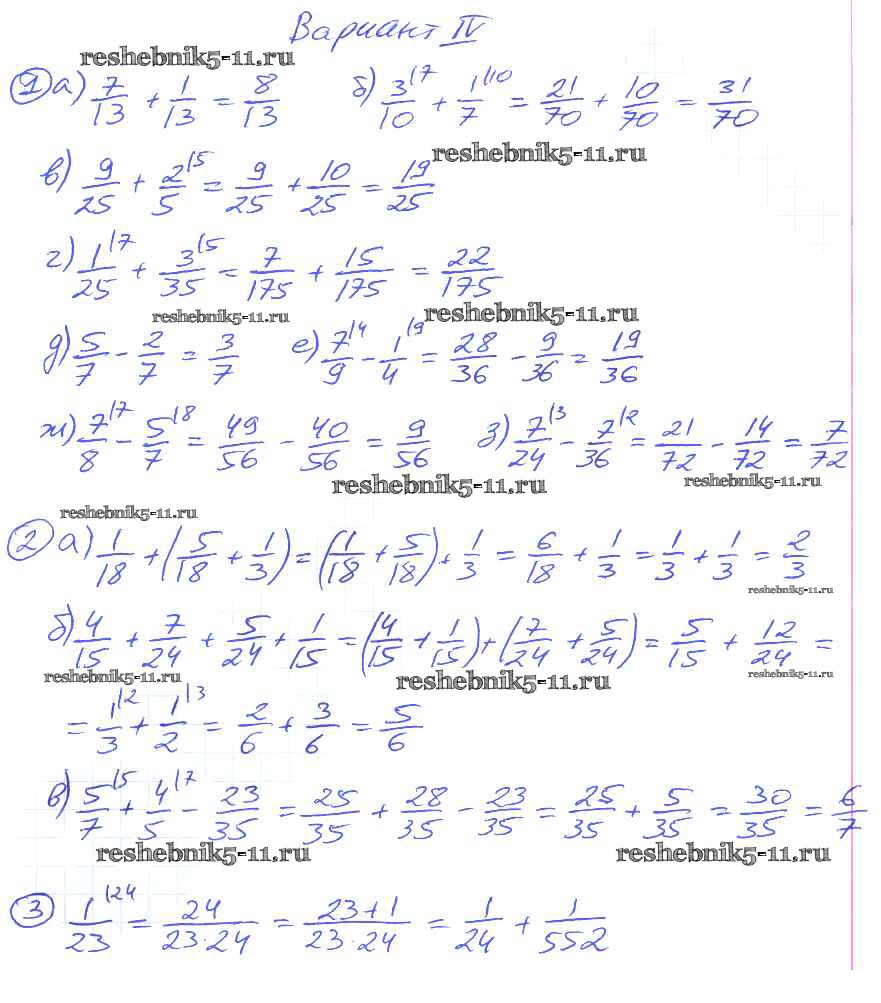 Вариант IV
reshebnik5-11.ru
① а) 7/13 + 1/13 = 8/13 б) 3/10 |7 + 1/7 |10 = 21/70 + 10/70 = 31/70
reshebnik5-11.ru
в) 9/25 + 2/5 |5 = 9/25 + 10/25 = 19/25
г) 1/25 |7 + 3/35 |5 = 7/175 + 15/175 = 22/175
reshebnik5-11.ru reshebnik5-11.ru
д) 5/7 - 2/7 = 3/7 е) 7/9 |4 - 1/4 |9 = 28/36 - 9/36 = 19/36
ж) 7/8 |7 - 5/7 |8 = 49/56 - 40/56 = 9/56 з) 7/24 |3 - 7/36 |2 = 21/72 - 14/72 = 7/72
reshebnik5-11.ru reshebnik5-11.ru
reshebnik5-11.ru
② а) 1/18 + (5/18 + 1/3) = (1/18 + 5/18) + 1/3 = 6/18 + 1/3 = 1/3 + 1/3 = 2/3
reshebnik5-11.ru
б) 4/15 + 7/24 + 5/24 + 1/15 = (4/15 + 1/15) + (7/24 + 5/24) = 5/15 + 12/24 =
reshebnik5-11.ru reshebnik5-11.ru reshebnik5-11.ru
= 1/3 |2 + 1/2 |3 = 2/6 + 3/6 = 5/6
в) 5/7 |5 + 4/5 |7 - 23/35 = 25/35 + 28/35 - 23/35 = 25/35 + 5/35 = 30/35 = 6/7
reshebnik5-11.ru reshebnik5-11.ru
③ 1/23 |24 = 24/23·24 = 23+1/23·24 = 1/24 + 1/552